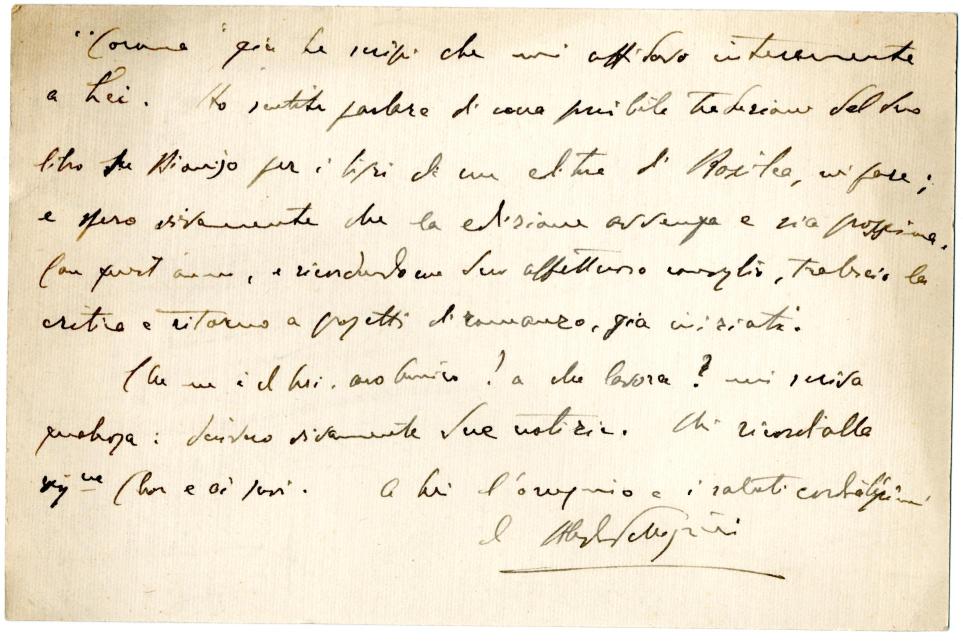 "Corona" già le scrissi che mi affidavo interamente
a Lei. Ho sentito parlare di una possibile traduzione del suo
libro su Dioniso per i tipi di un editore di Basilea, mi pare;
e spero vivamente che la edizione avvenga e sia prossima.
Con quest'anno, e ricordandomi suo affettuoso consiglio, tralascio la
critica e ritorno a progetti di romanzo, già iniziati.
Che ne è di Lei, caro ? a che lavora? mi scriva
qualcosa: desidero vivamente sue notizie. Mi ricordi alla
sig.ra e ai suoi. A Lei l'omaggio e i saluti cordialissimi